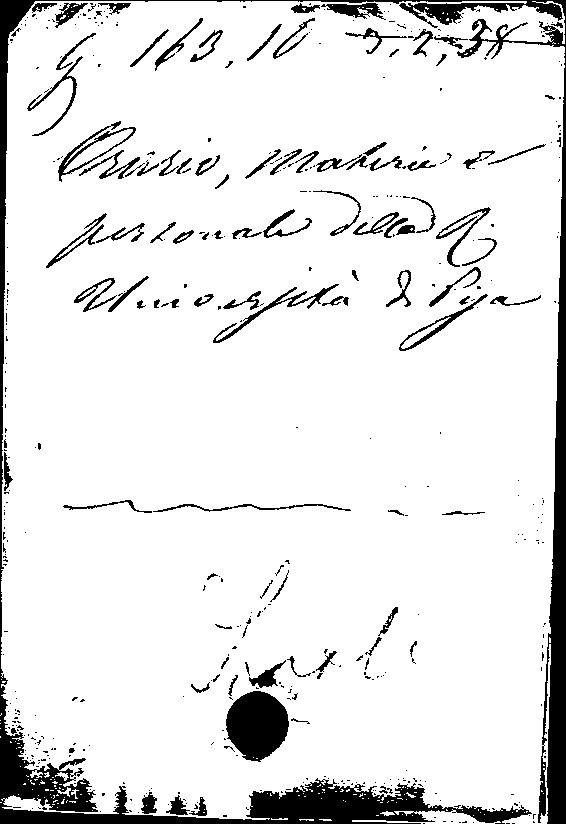 G. 163, 10 3, 2, 38
Orario, Materie e
personale della R.
Università di Pisa